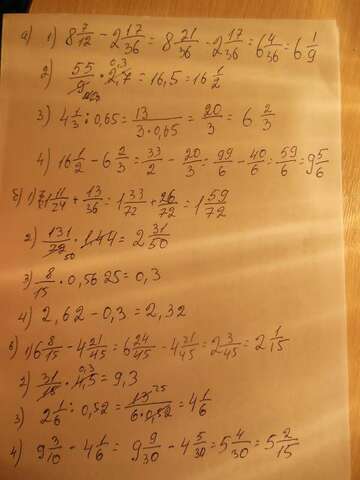 а) 1) 8 7/12 - 2 17/36 = 8 21/36 - 2 17/36 = 6 4/36 = 6 1/9
2) 55/9 · 2,7 0,3 = 16,5 = 16 1/2
3) 4 1/3 : 0,65 = 13/3·0,65 = 20/3 = 6 2/3
4) 16 1/2 - 6 2/3 = 33/2 - 20/3 = 99/6 - 40/6 = 59/6 = 9 5/6
б) 1) 1 11/24 + 13/36 = 1 33/72 + 26/72 = 1 59/72
2) 131/72 50 · 1,44 = 2 31/50
3) 8/15 · 0,5625 = 0,3
4) 2,62 - 0,3 = 2,32
в) 1) 6 8/15 - 4 21/45 = 6 24/45 - 4 21/45 = 2 3/45 = 2 1/15
2) 31/15 · 4,5 0,3 = 9,3
3) 2 1/6 : 0,52 = 13 25/6·0,52 = 4 1/6
4) 9 3/10 - 4 1/6 = 9 9/30 - 4 5/30 = 5 4/30 = 5 2/15